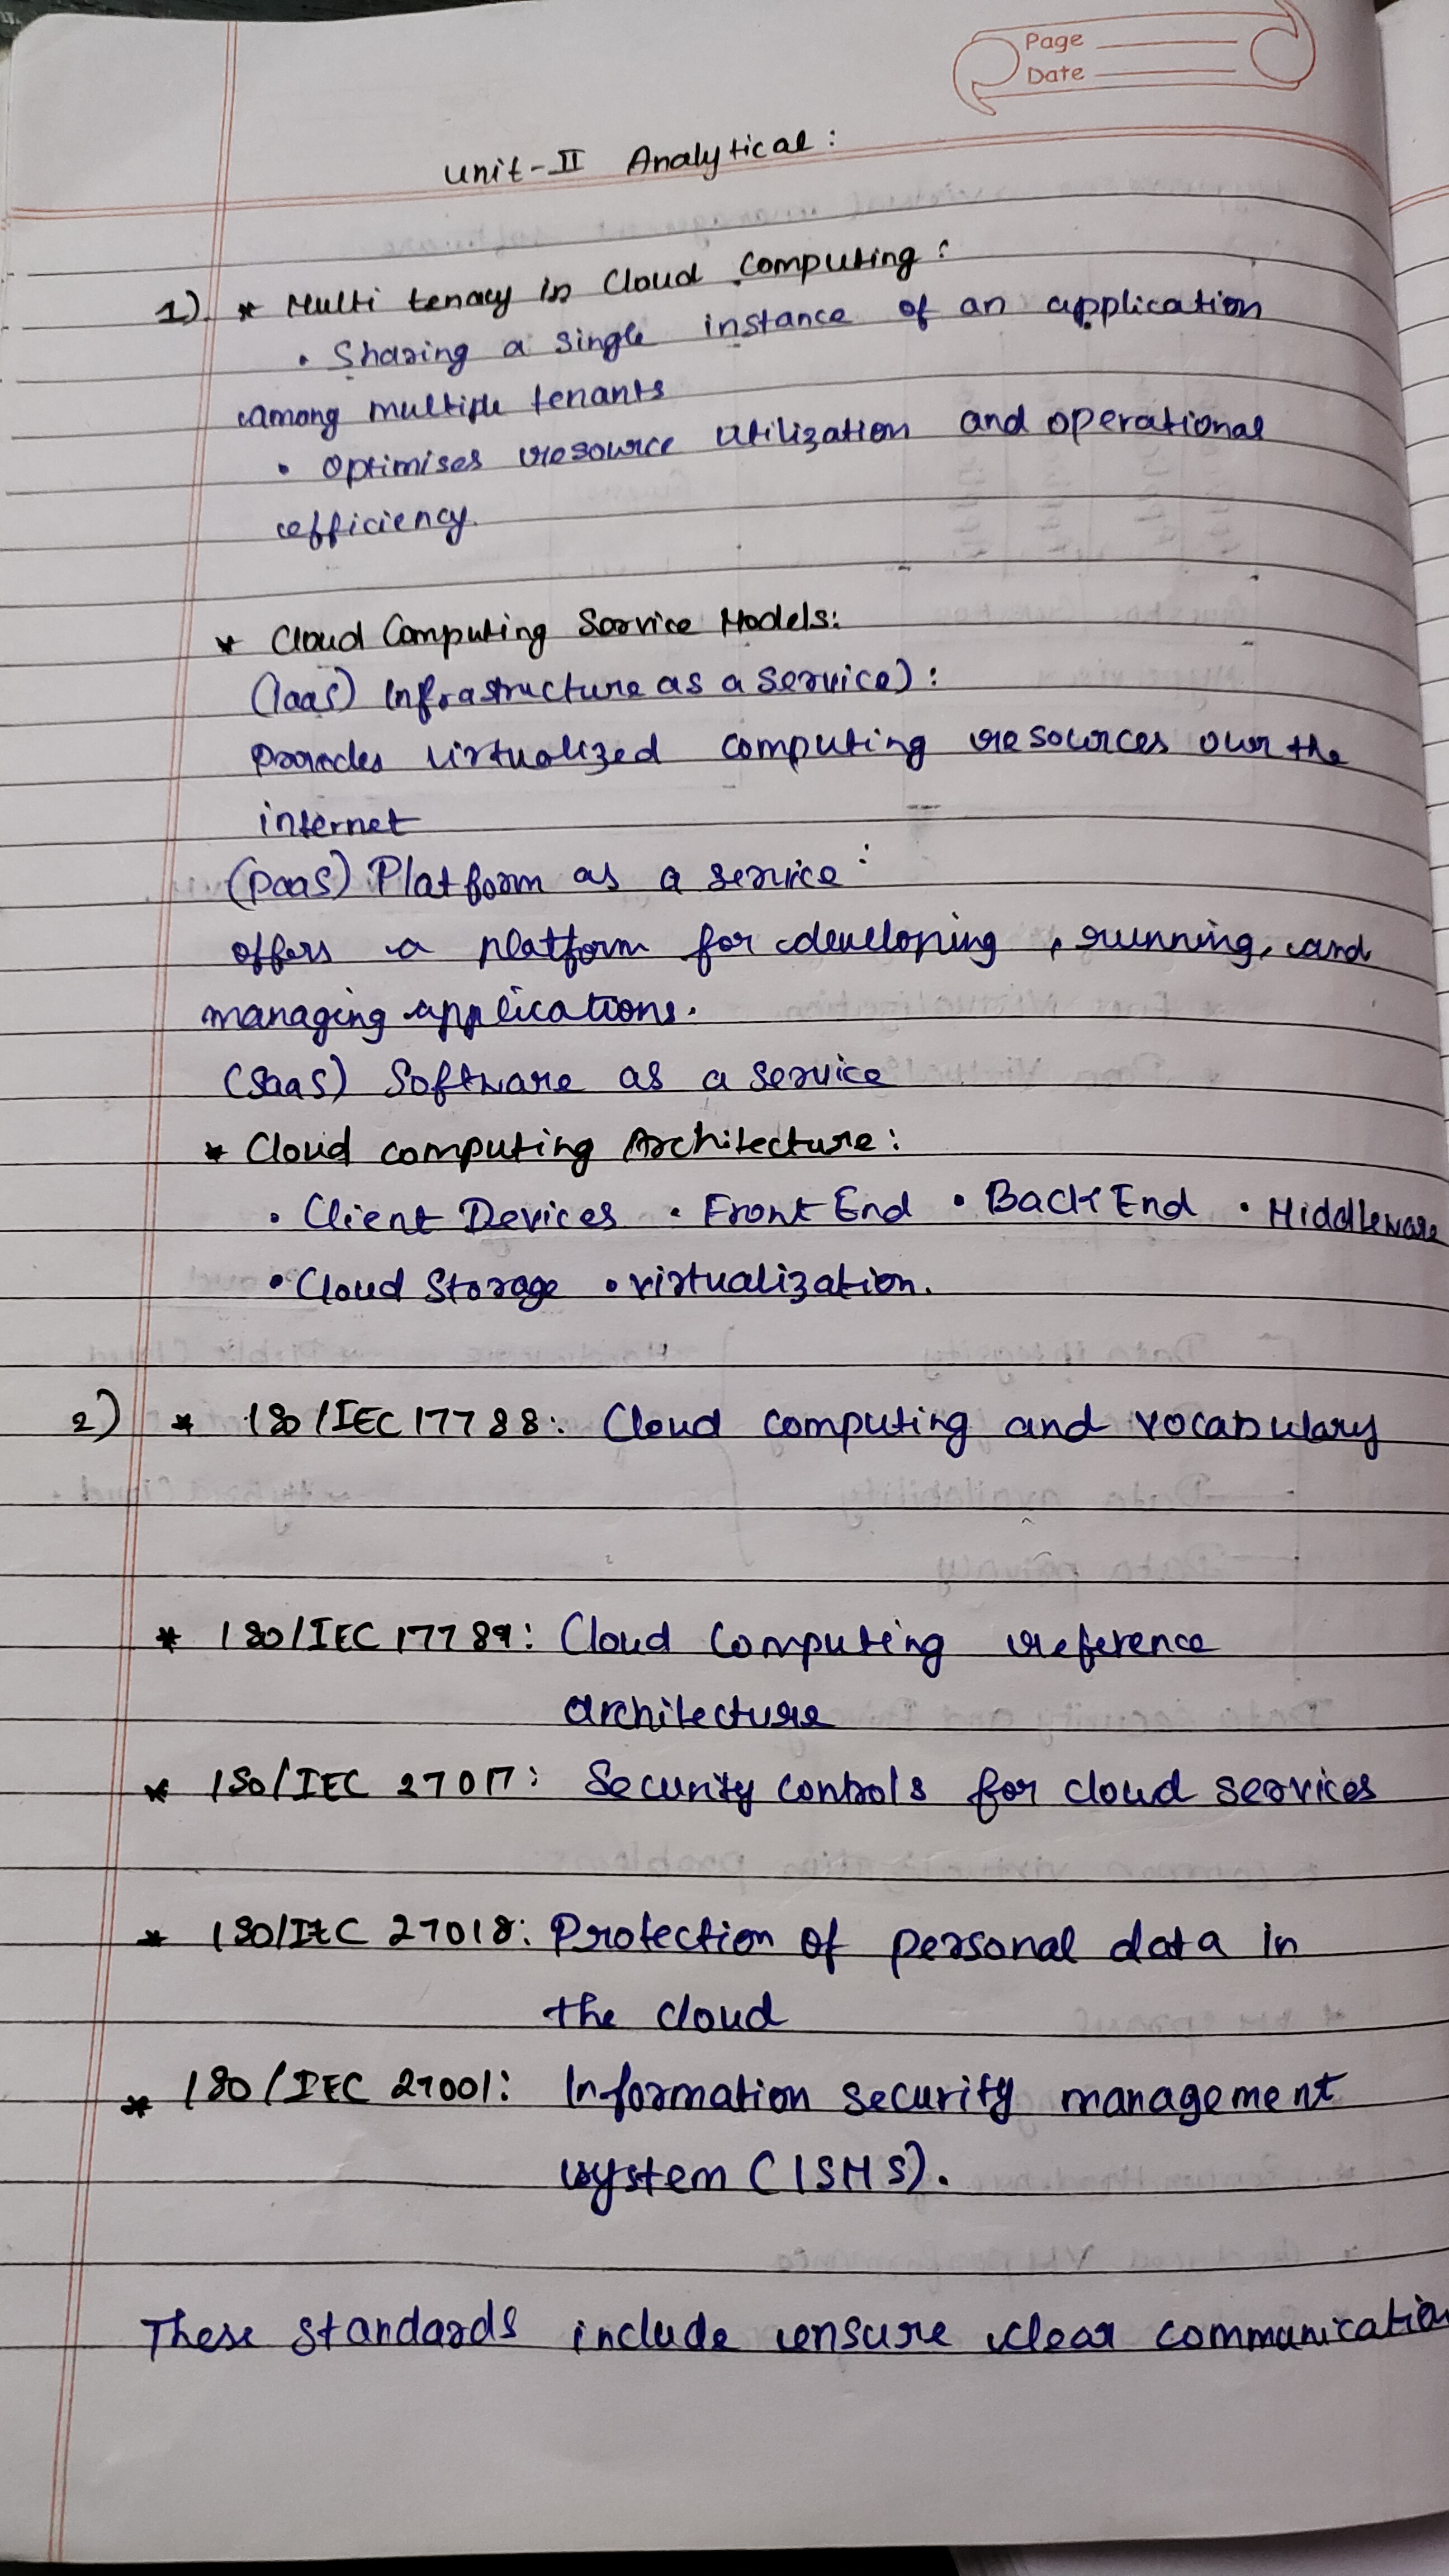 Page
Date
Unit-II Analytical:
1). * Multi tenacy in Cloud Computing:
• Sharing a single instance of an application
among multiple tenants
• Optimises resource utilization and operational
efficiency.
* Cloud Computing Service Models:
(IaaS) Infrastructure as a service):
Provides virtualized computing resources over the
internet
(PaaS) Platform as a service:
offers a platform for developing, running, and
managing applications.
(SaaS) Software as a service
* Cloud computing Architecture:
• Client Devices • Front End • Back End • Middleware
• Cloud Storage • virtualization.
2) * ISO/IEC 17788: Cloud computing and vocabulary
* ISO/IEC 17789: Cloud Computing reference
architecture
* ISO/IEC 27017: Security controls for cloud services
* ISO/IEC 27018: Protection of personal data in
the cloud
* ISO/IEC 27001: Information security management
system (ISMS).
These standards include ensure clear communication